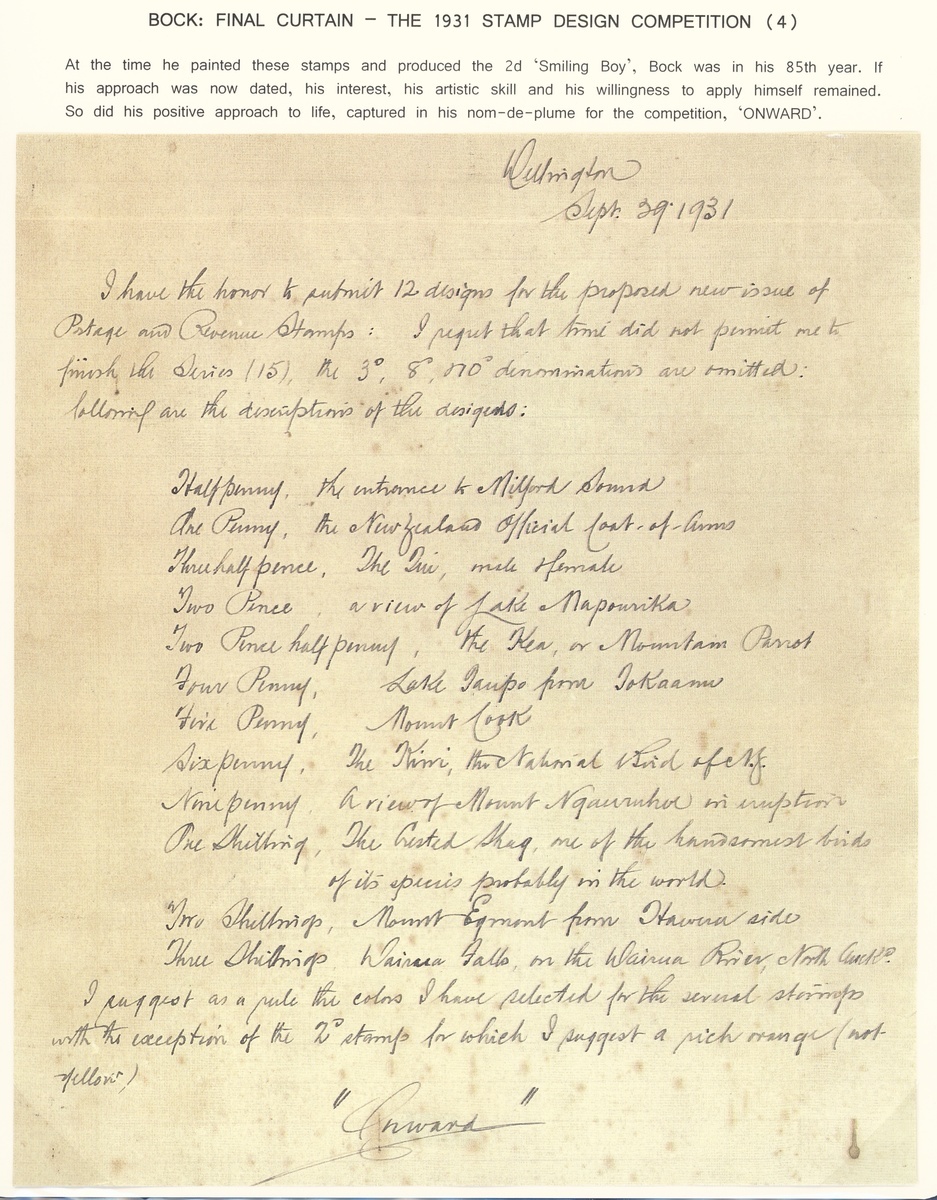 BOCK: FINAL CURTAIN – THE 1931 STAMP DESIGN COMPETITION (4)
At the time he painted these stamps and produced the 2d ‘Smiling Boy’, Bock was in his 85th year. If
his approach was now dated, his interest, his artistic skill and his willingness to apply himself remained.
So did his positive approach to life, captured in his nom-de-plume for the competition, ‘ONWARD’.
Wellington
Sept. 29 1931
I have the honor to submit 12 designs for the proposed new issue of
Postage and Revenue Stamps: I regret that time did not permit me to
finish the Series (15), the 3ᴰ, 8ᴰ, 10ᴰ denominations are omitted:
following are the descriptions of the designs:
Halfpenny, the entrance to Milford Sound
One Penny, the New Zealand Official Coat-of-Arms
Threehalfpence, The Tui, male & female
Two Pence, a view of Lake Mapourika
Two Pence halfpenny, the Kea, or Mountain Parrot
Four Penny, Lake Taupo from Tokaanu
Five Penny, Mount Cook
Sixpenny, The Kiwi, the National Bird of N.Z.
Ninepenny, A view of Mount Ngauruhoe in eruption
One Shilling, The Crested Shag, one of the handsomest birds
of its species probably in the world.
Two Shillings, Mount Egmont from Hawera side
Three Shillings Wairua Falls, on the Wairua River, North Auckᴰ.
I suggest as a rule the colors I have selected for the several stamps
with the exception of the 2ᴰ stamps for which I suggest a rich orange (not
yellow)
"Onward"